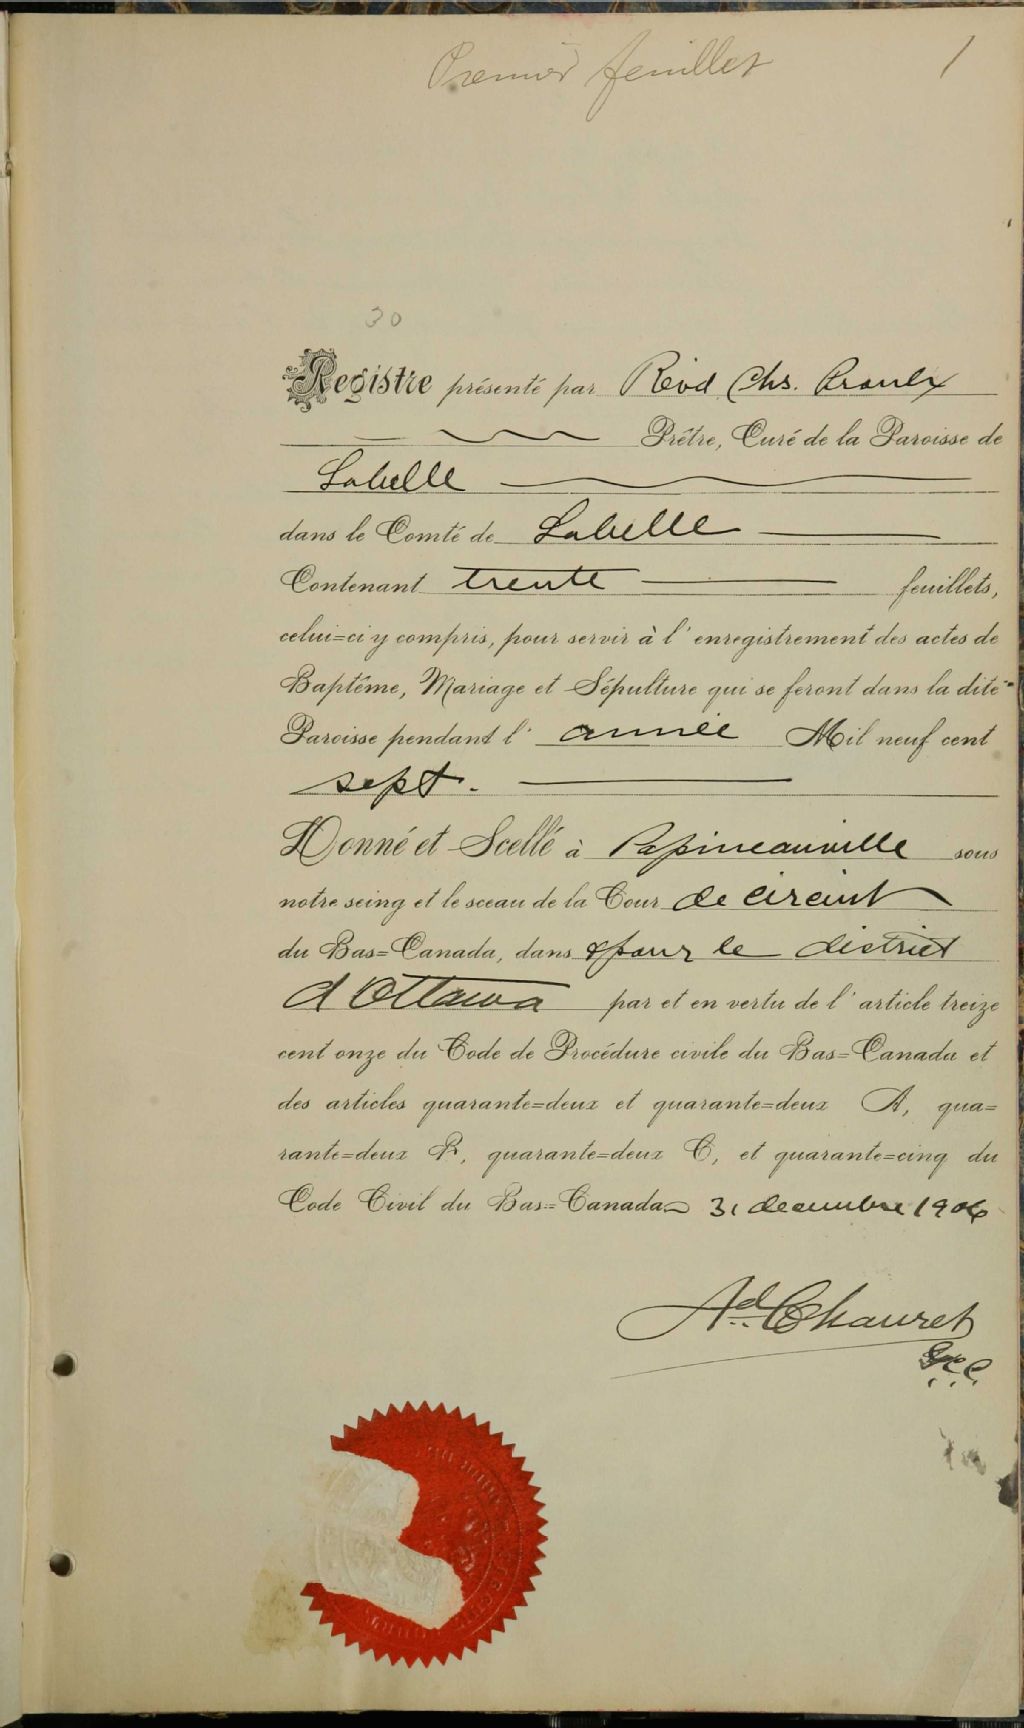 Premier feuillet 1
30
Registre présenté par Révd Chs. Proulx
Prêtre, Curé de la Paroisse de
Labelle
dans le Comté de Labelle
Contenant trente feuillets,
celui=ci y compris, pour servir à l'enregistrement des actes de
Baptême, Mariage et Sépulture qui se feront dans la dite
Paroisse pendant l'année Mil neuf cent
sept.
Donné et Scellé à Papineauville sous
notre seing et le sceau de la Cour de circuit
du Bas=Canada, dans & pour le district
d'Ottawa par et en vertu de l'article treize
cent onze du Code de Procédure civile du Bas=Canada et
des articles quarante=deux et quarante=deux A, qua=
rante=deux B, quarante=deux C, et quarante=cinq du
Code Civil du Bas=Canada 31 decembre 1906
Ad. Chauret
G.C.C.